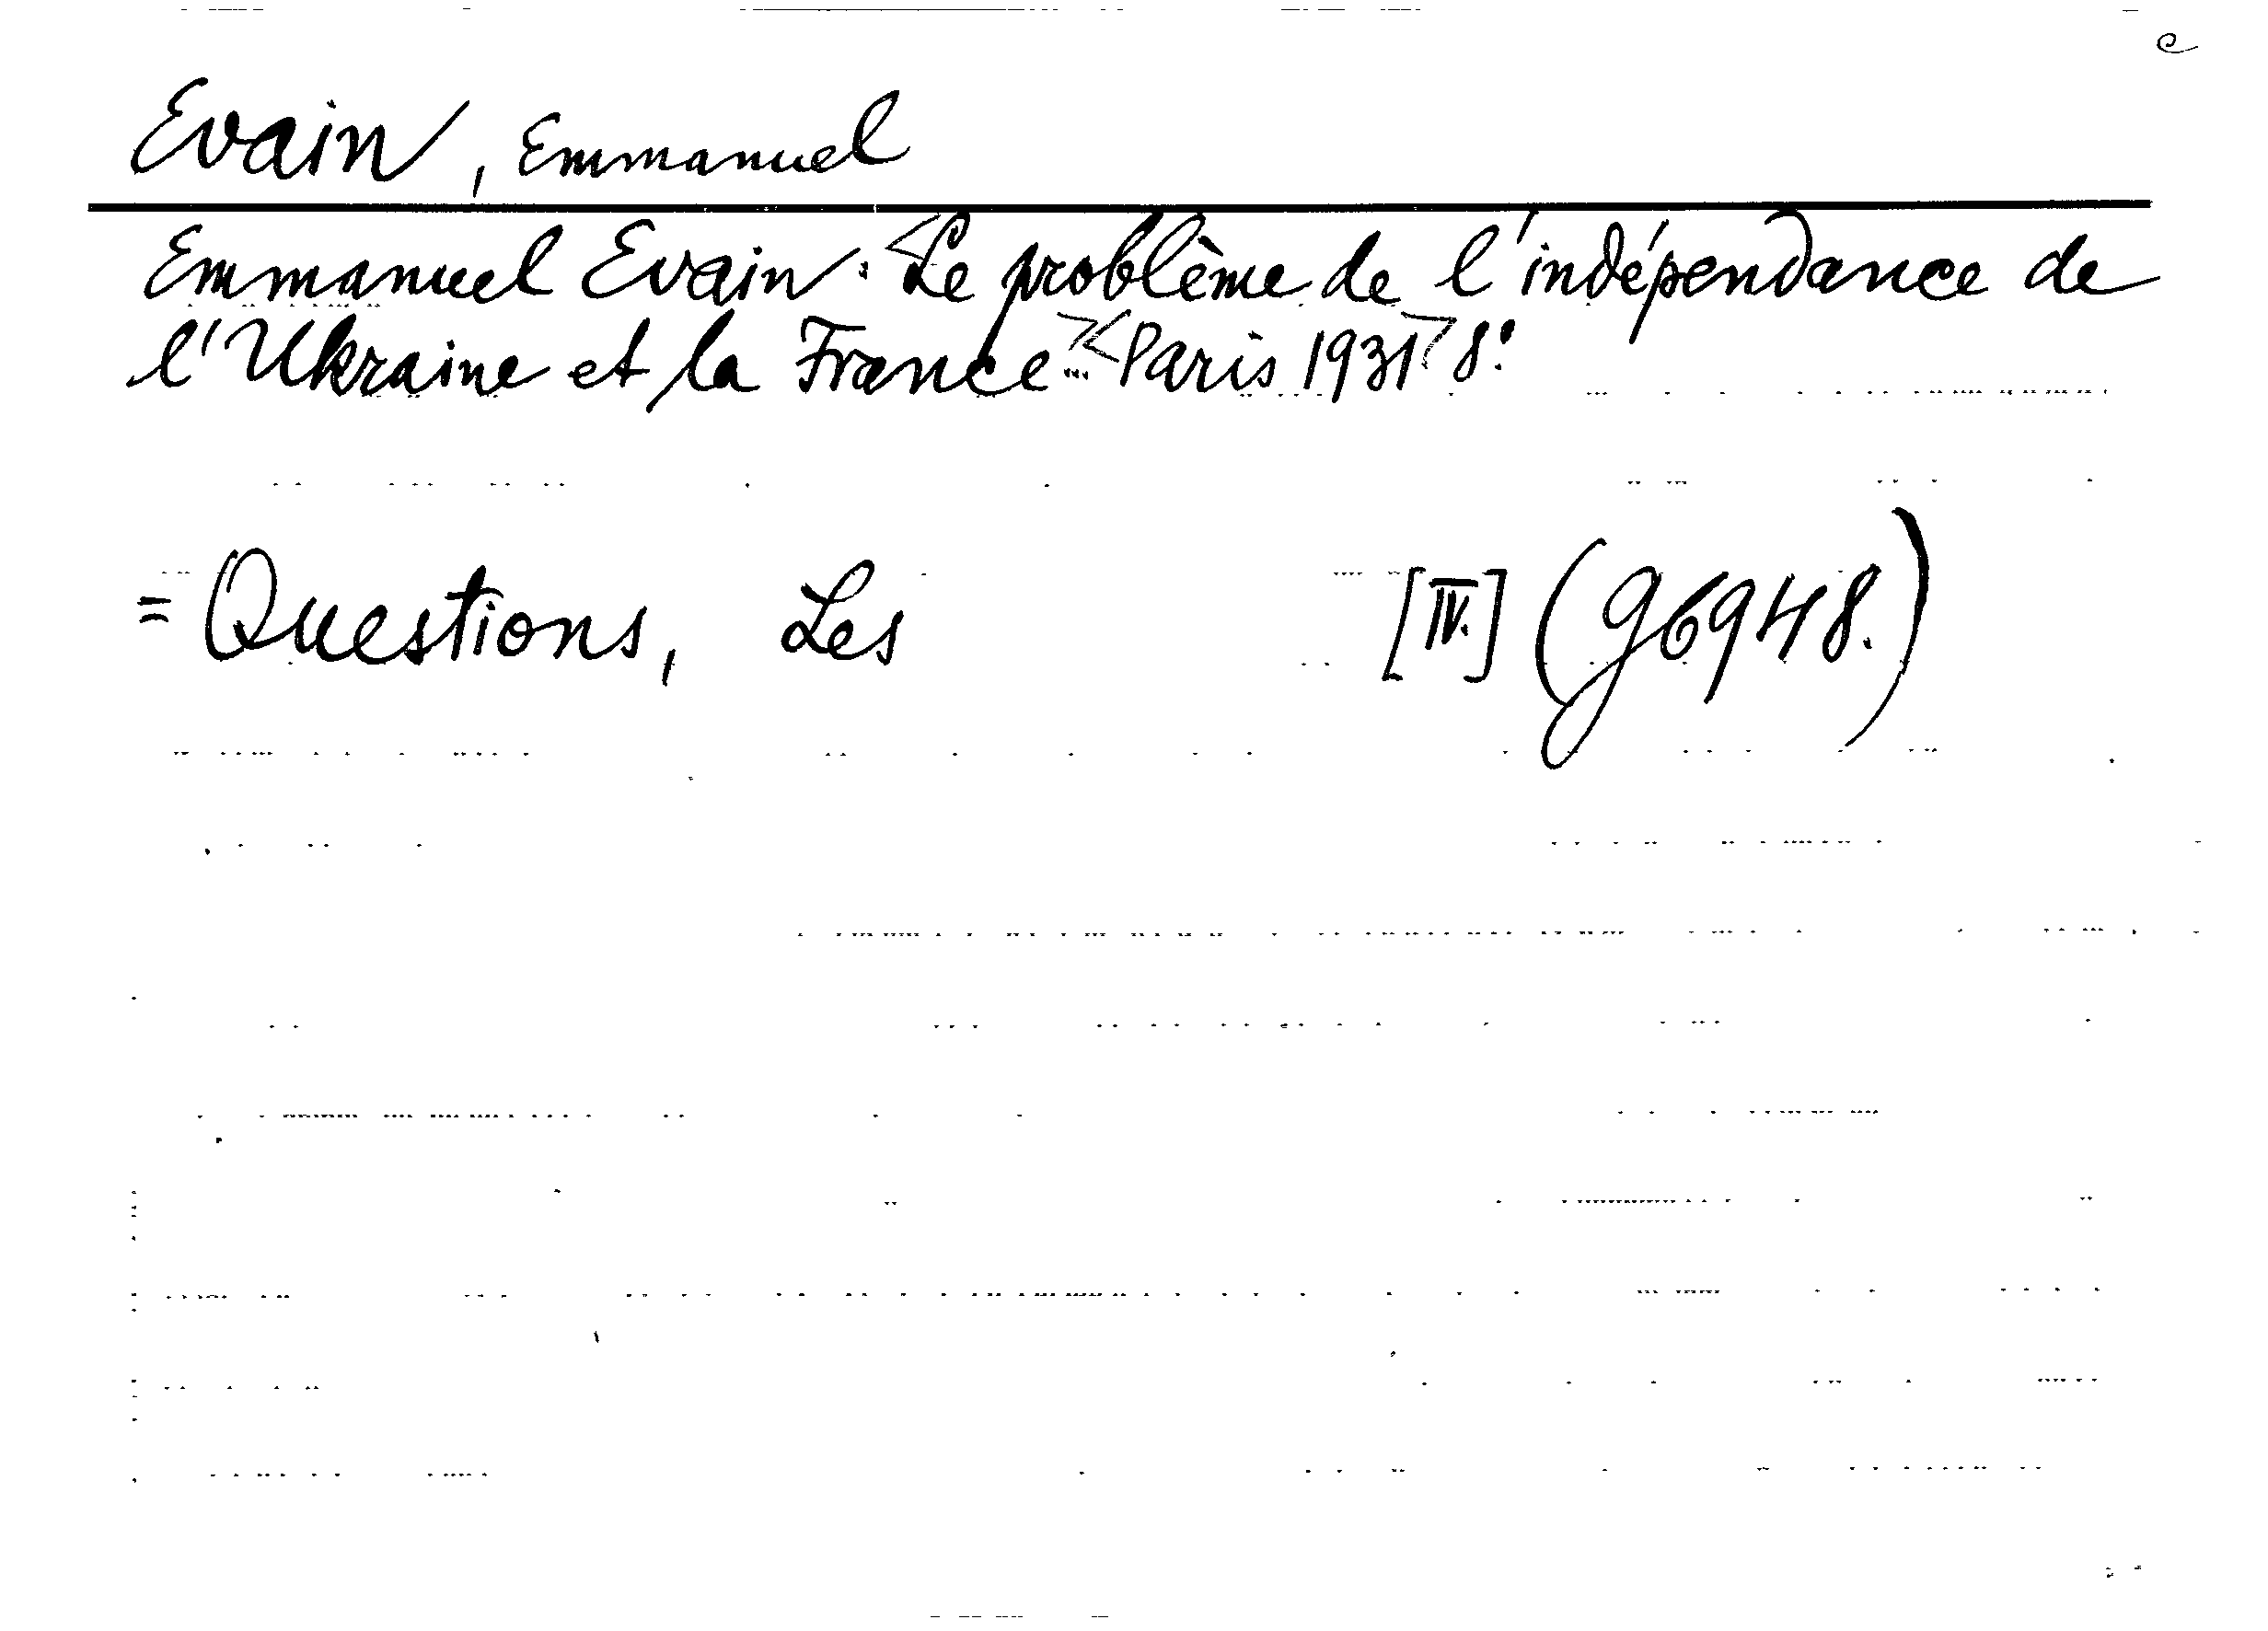 c
Evain, Emmanuel
Emmanuel Evain: <Le problème de l'indépendance de
l'Ukraine et la France ...> <Paris 1931> 8°.
= Questions, Les [IV.] (g6948.)